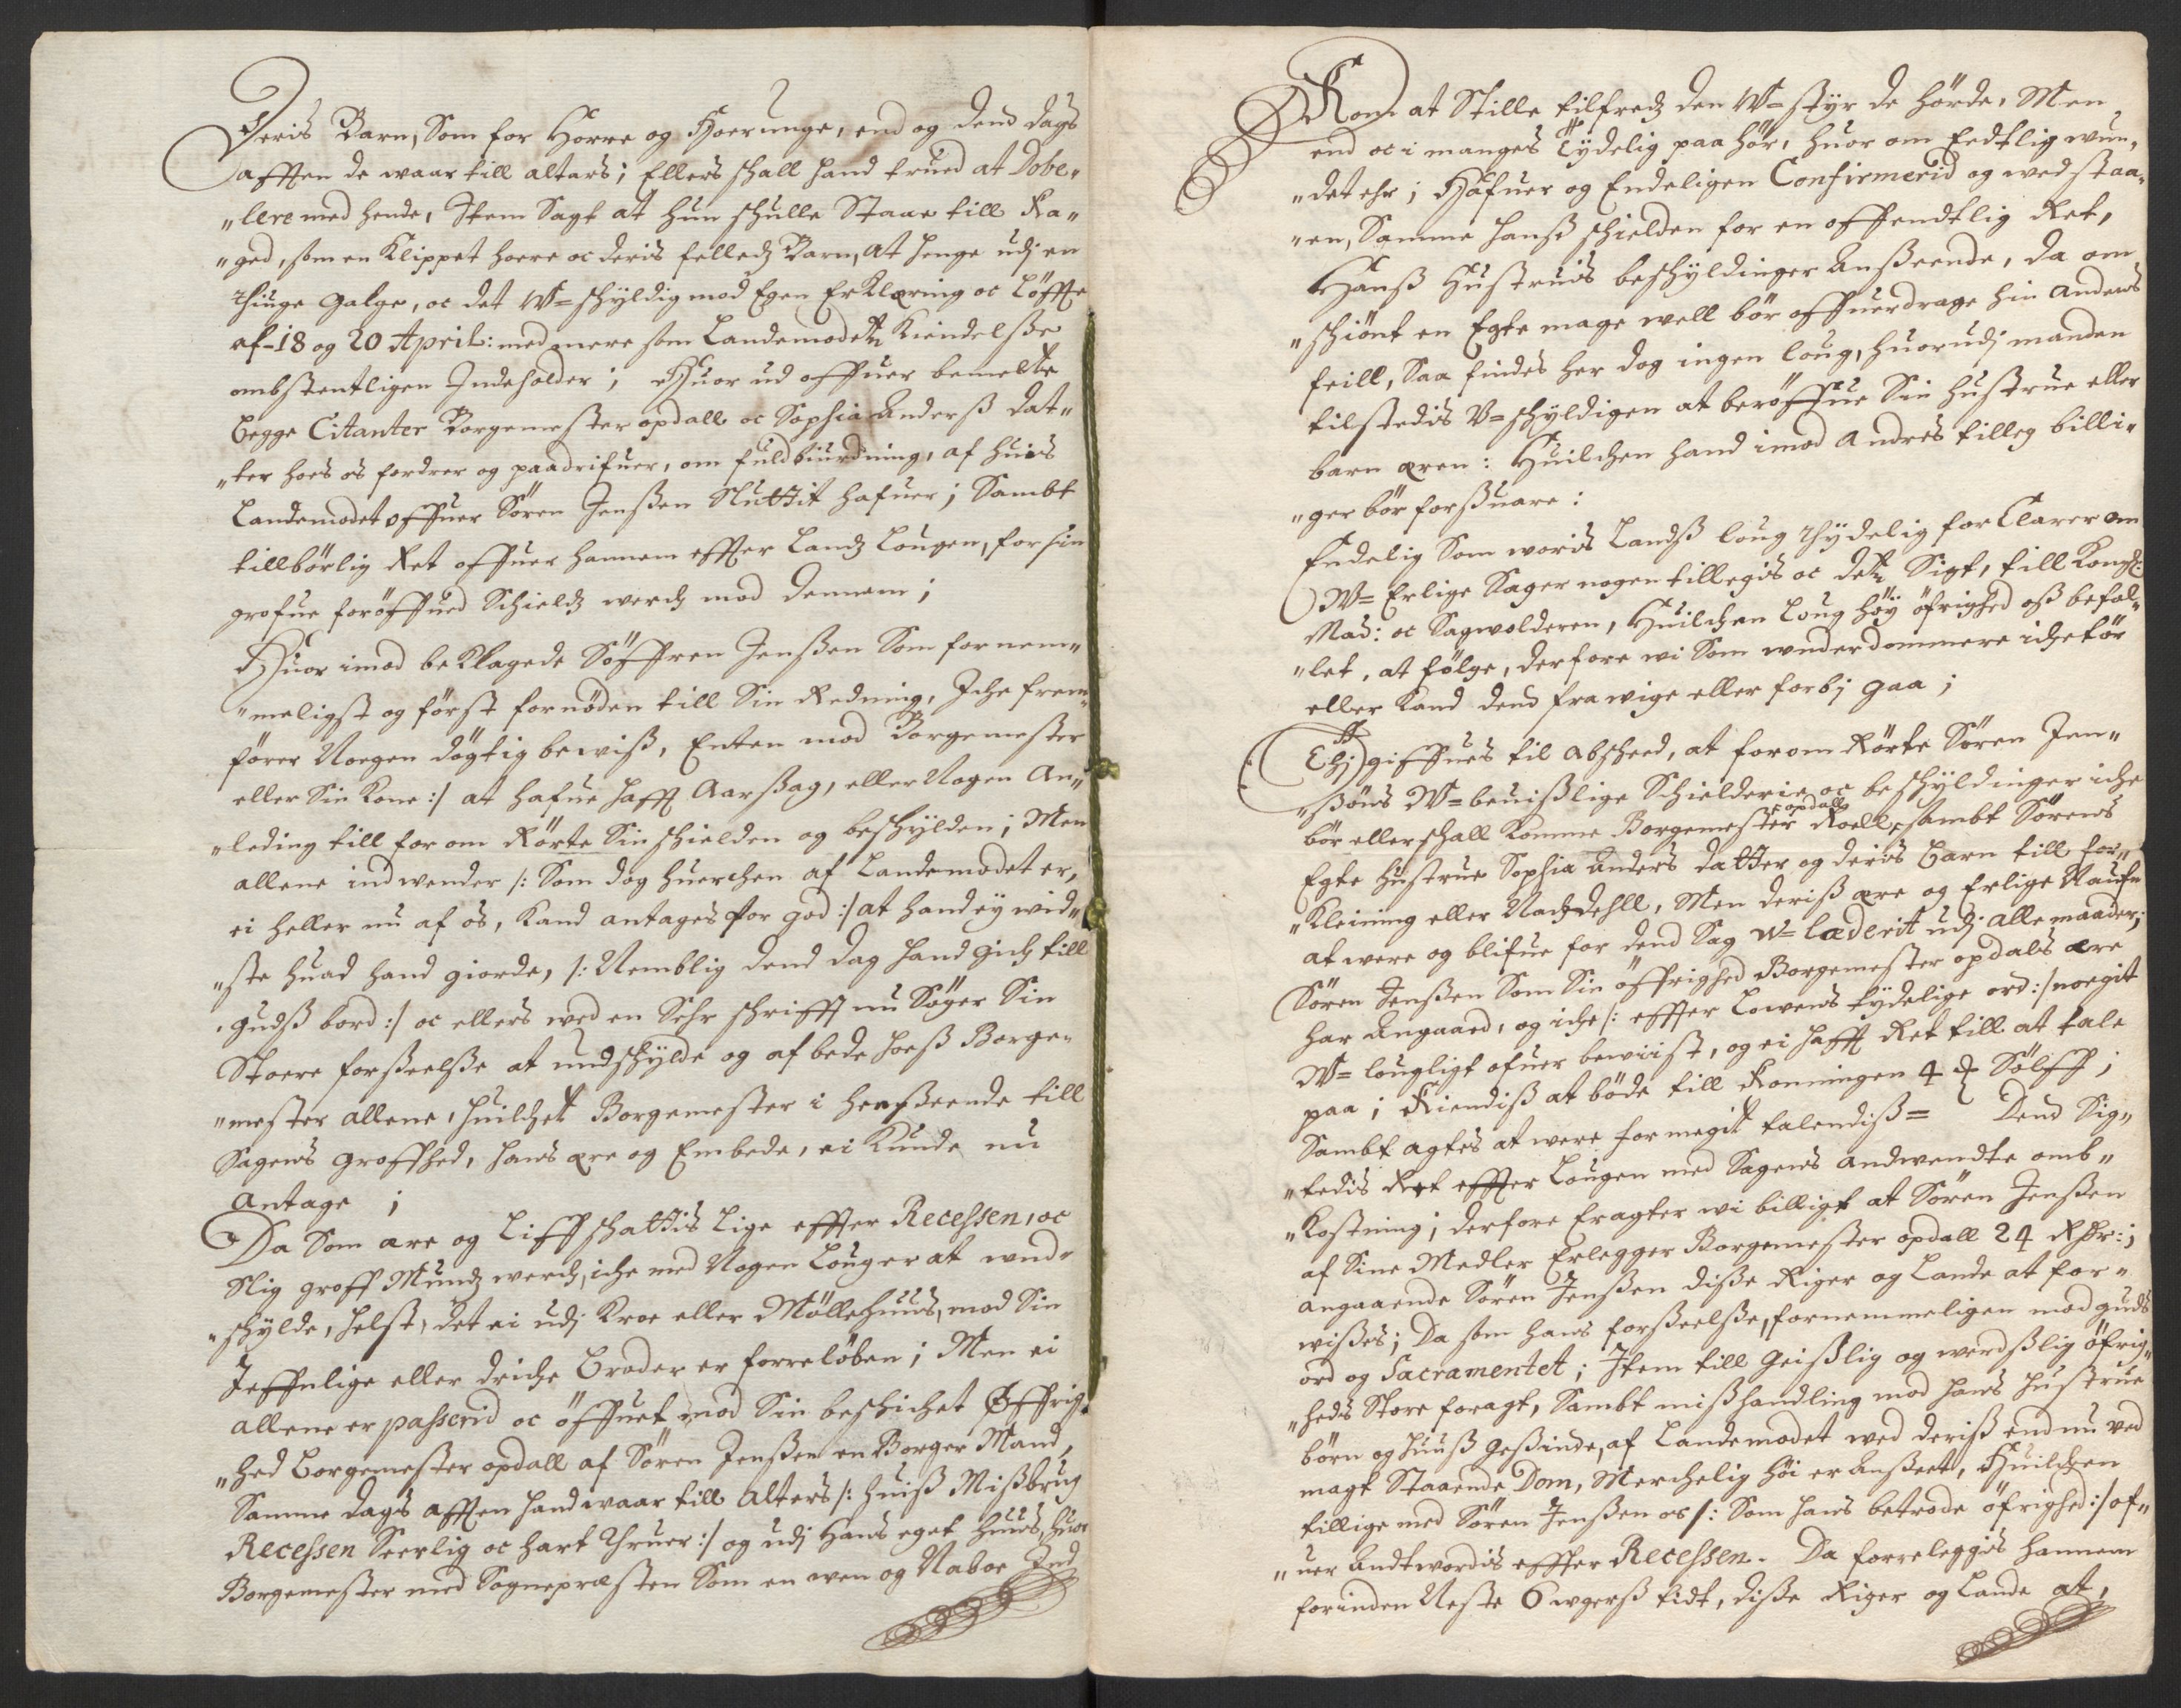 Deris Barn, Som for Horre og Hoerunge, end og dend dags
afften de waar till altars; Ellers schall hand trued at Dobe„
„lere med hende, Item Sagt at hun schulle Staae till Ka„
„ged, som en Klippet hoere oc deris felleds Barn, at henge udj en
thiuge galge, oc det W=schyldig mod Egen Erklæring oc Løffte
af-18 og 20 April: med mere som Landemodetz Kiendelsse
ombstentligen Indeholder; Huor ud offuer bemelte
begge Citanter Borgemester opdall oc Sophia Anderss dat„
„ter hoes os fordrer og paadrifuer, om fuldbiurdning, af huis
Landemodet offuer Søren Jenssen Sluttit hafuer; Sambt
tillbørlig Ret offuer hannem effter Landz Lougen, for sin
grofue forøffued Schields werck mod dennem;
Huor imod beklagede Søffren Jenssen Som fornem„
„meligst og først fornøden till Sin Redning, Iche frem„
fører Noegen døgtig bewiss, Enten mod Borgemester
eller Sin Kone :/ at hafue hafft Aarssag, eller Nogen An„
„leding till for om Rørte Sin schielden og beschylden; Men
allene indwender /: Som dog huerchen af Landemodet er,
ei heller nu af os, kand antages for god :/ at hand ey wid„
„ste huad hand giorde, /: Nemblig dend dag hand gich till
„gudss bord :/ oc ellers wed en Sehr schrifft nu Søger Sin
Stoere forsseelsse at undschylde og af bede hoess Borge„
„mester allene, huilchet Borgemester i henseende till
Sagens groffhed, hans ære og Embede, ei kunde nu
antage ;
Da Som ære og Liff schattis Lige effter Recessen, oc
Slig groff Mundz werck, iche med Nogen Louger at wnd„
„schylde, helst, det ei udj Kroe eller Møllehuus, mod Sin
Jeffnlige eller driche broder er forreløben; Men ei
allene er passerid oc øffuet mod Sin beschichet Øffrig„
„hed borgemester opdall af Søren Jenssen en Borger Mand,
Samme dags afften hand waar till Alters /: huiss Missbrug
Recessen Serlig oc hart truer :/ og udj Hans eget huus, huor
Borgemester med Sognepræsten Som en wen og Naboe Ind
Kom at Stille tilfreds den W=styr de hørde, Men
end oc i manges tydelig paa hør, huor om Eedtlig wun„
„det ehr; Hafuer og Endeligen Confirmerid og wed staa„
„en, Samme hanss schielden for en offendtlig Ret,
Hanss Hustruis beschyldinger ansseende, da om
„schiønt en Egte mage well bør offuerdrage hin andens
feill, Saa findes her dog ingen loug, huorudj manden
tilstedis W=schyldigen at berøffue Sin hustrue eller
barn æren: Huilchen hand imod andres tilleg billi„
„ger bør forssuare:
Endelig Som woris Landss loug thydelig for Clarer om
W=Erlige Sager nogen tillegis oc dettz Sigt, till Kongl:
Mas: oc Sagwolderen, Huilchen Loug høy øfrighed oss befal„
„let, at følge, derfore wi Som wnderdommere iche tør
eller kand dend fra wige eller forbj gaa;
Thj giffues til Absheed, at forom Rørte Søren Jen„
„ssøns W=beuisslige Schielderie oc beschyldinger iche
bør eller schall komme Borgemester Roell opdall, sambt Sørens
Egte Hustrue Sophia Anders datter og deris barn till for„
„kleining eller Nachdehll, Men deriss ære og Erlige Naufn
at were og blifue for dend Sag W=læderit udj alle maader;
Søren Jenssen Som Sin øffrighed Borgemester opdals ære
har Angaaed, og iche /: effter Lowens tydelige ord :/ noegit
W=lougligt ofuer bewiist, og ei hafft Ret till at tale
paa; Kiendiss at bøde till Konningen 4 Sølff;
Sambt agtes at were for megit talendiss= Dend Sig„
„tedis Ret effter Lougen med Sagens andwendte omb„
„kostning; derfore Eragter wi billigt at Søren Jenssen
af Sine Medler Erlegger Borgemester opdall 24 Rdr:;
angaaende Søren Jenssen disse Riger og Lande at for„
wisses; Da som hans forsseelsse, fornemmeligen mod guds
ord og Sacramentet; Item till geisslig og werdsslig øfrig„
„heds Store foragt, Sambt misshandling mod hans hustrue
børn og huuss gessinde, af Landemodet wed deriss end nu ved
magt Staaende Dom, Merchelig høi er ansseet, Huilchen
tillige med Søren Jenssen os /: Som hans betrode øfrighed :/ of„
„uer Andtwordis effter Recessen. Da forreleggis hannem
forinden Neste 6 wgerss tidt, disse Riger og Lande at,